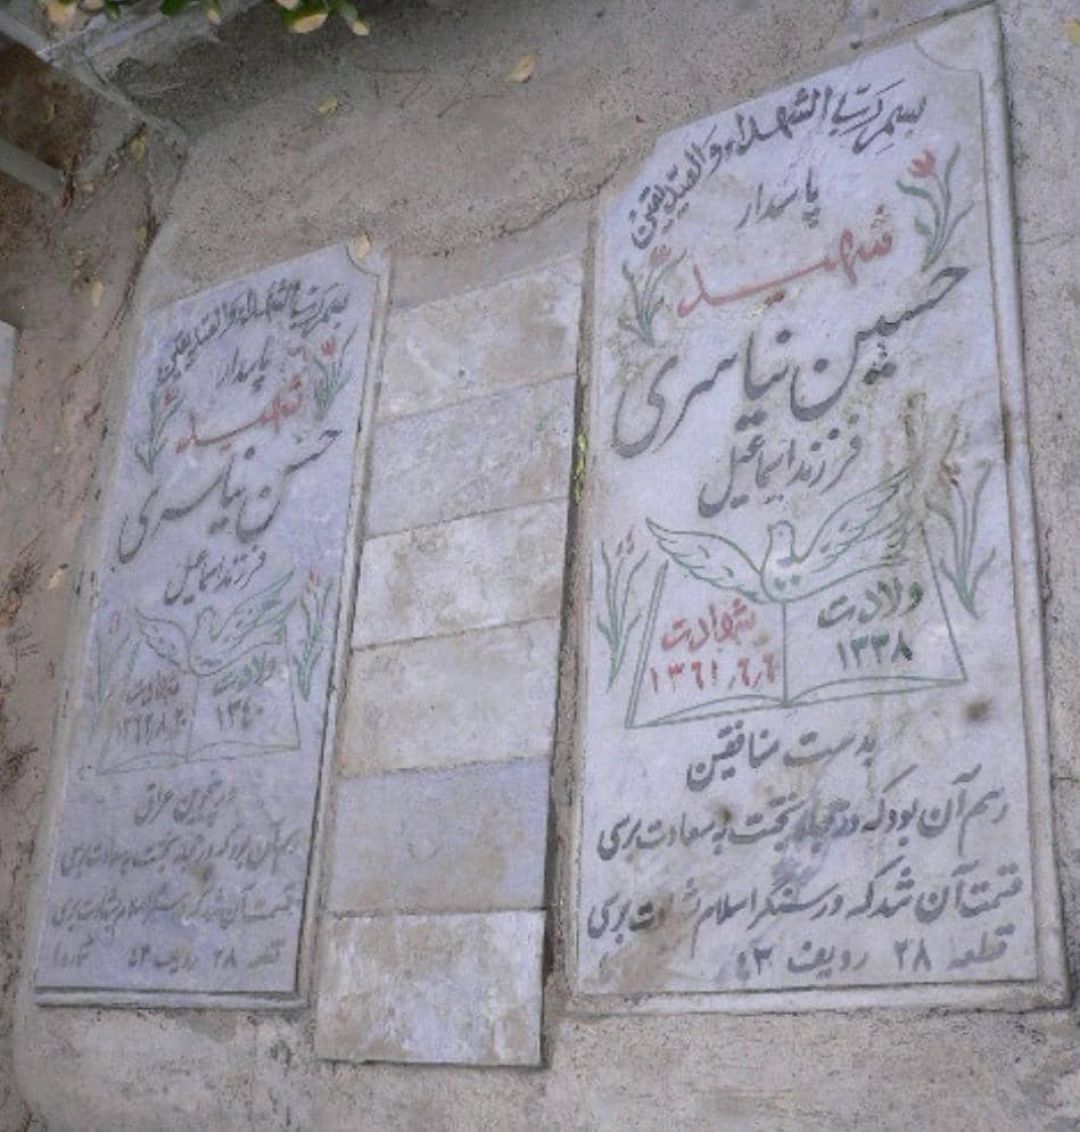 بسم رب الشهداء و الصدیقین
پاسدار
شهید
حسین نیاسری
فرزند اسماعیل
ولادت
۱۳۳۸
شهادت
۱۳٦۱٫٦٫٦
بدست منافقین
رسم آن بود که در حجله بتخت به سعادت برسی
قسمت آن شد که در سنگر اسلام شهادت برسی
قطعه ۲۸ ردیف ٤۳
بسم رب الشهداء و الصدیقین
پاسدار
شهید
حسن نیاسری
فرزند اسماعیل
ولادت
۱۳٤۰
شهادت
عراق
رسم آن بود که در حجله بتخت به سعادت برسی
قسمت آن شد که در سنگر اسلام شهادت برسی
قطعه ۲۸ ردیف ٤۳